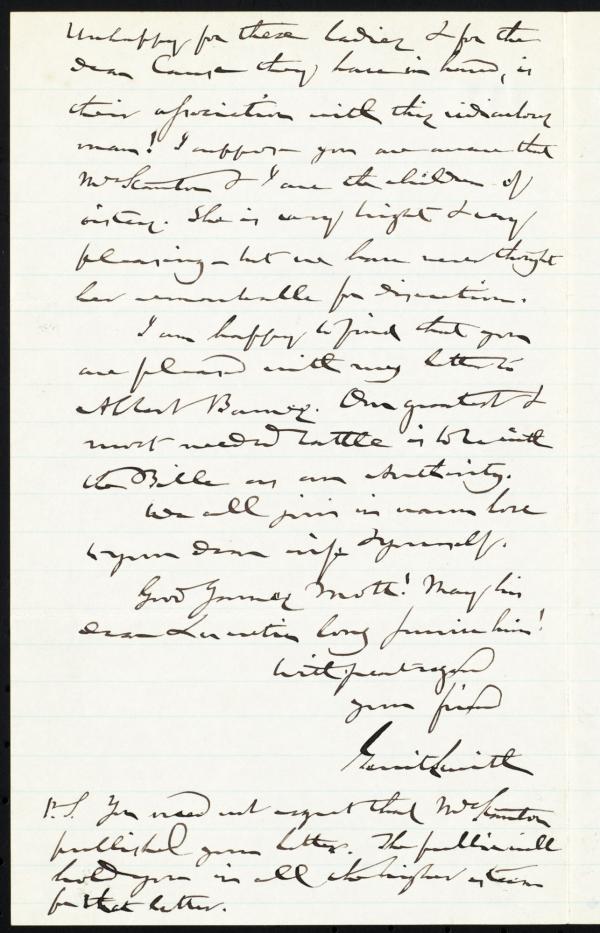 Unhappy for these ladies & for the
dear Cause they have in hand, is
their association with this ridiculous
man! I suppose you are aware that
Mrs Stanton & I are the children of
sisters. She is very bright & very
pleasing - but we have never thought
her remarkable for discretion.
I am happy to find that you
are pleased with my letter to
Albert Barnes. Our greatest &
most needed battle is to be with
the Bible as an Authority.
We all join in warm love
to your dear wife & yourself.
Good James Mott! May his
dear Lucretia long survive him!
With great regard
your friend
Gerrit Smith
P.S. You need not regret that Mrs Stanton
published your letter. The public will
hold you in all the higher esteem
for that letter.